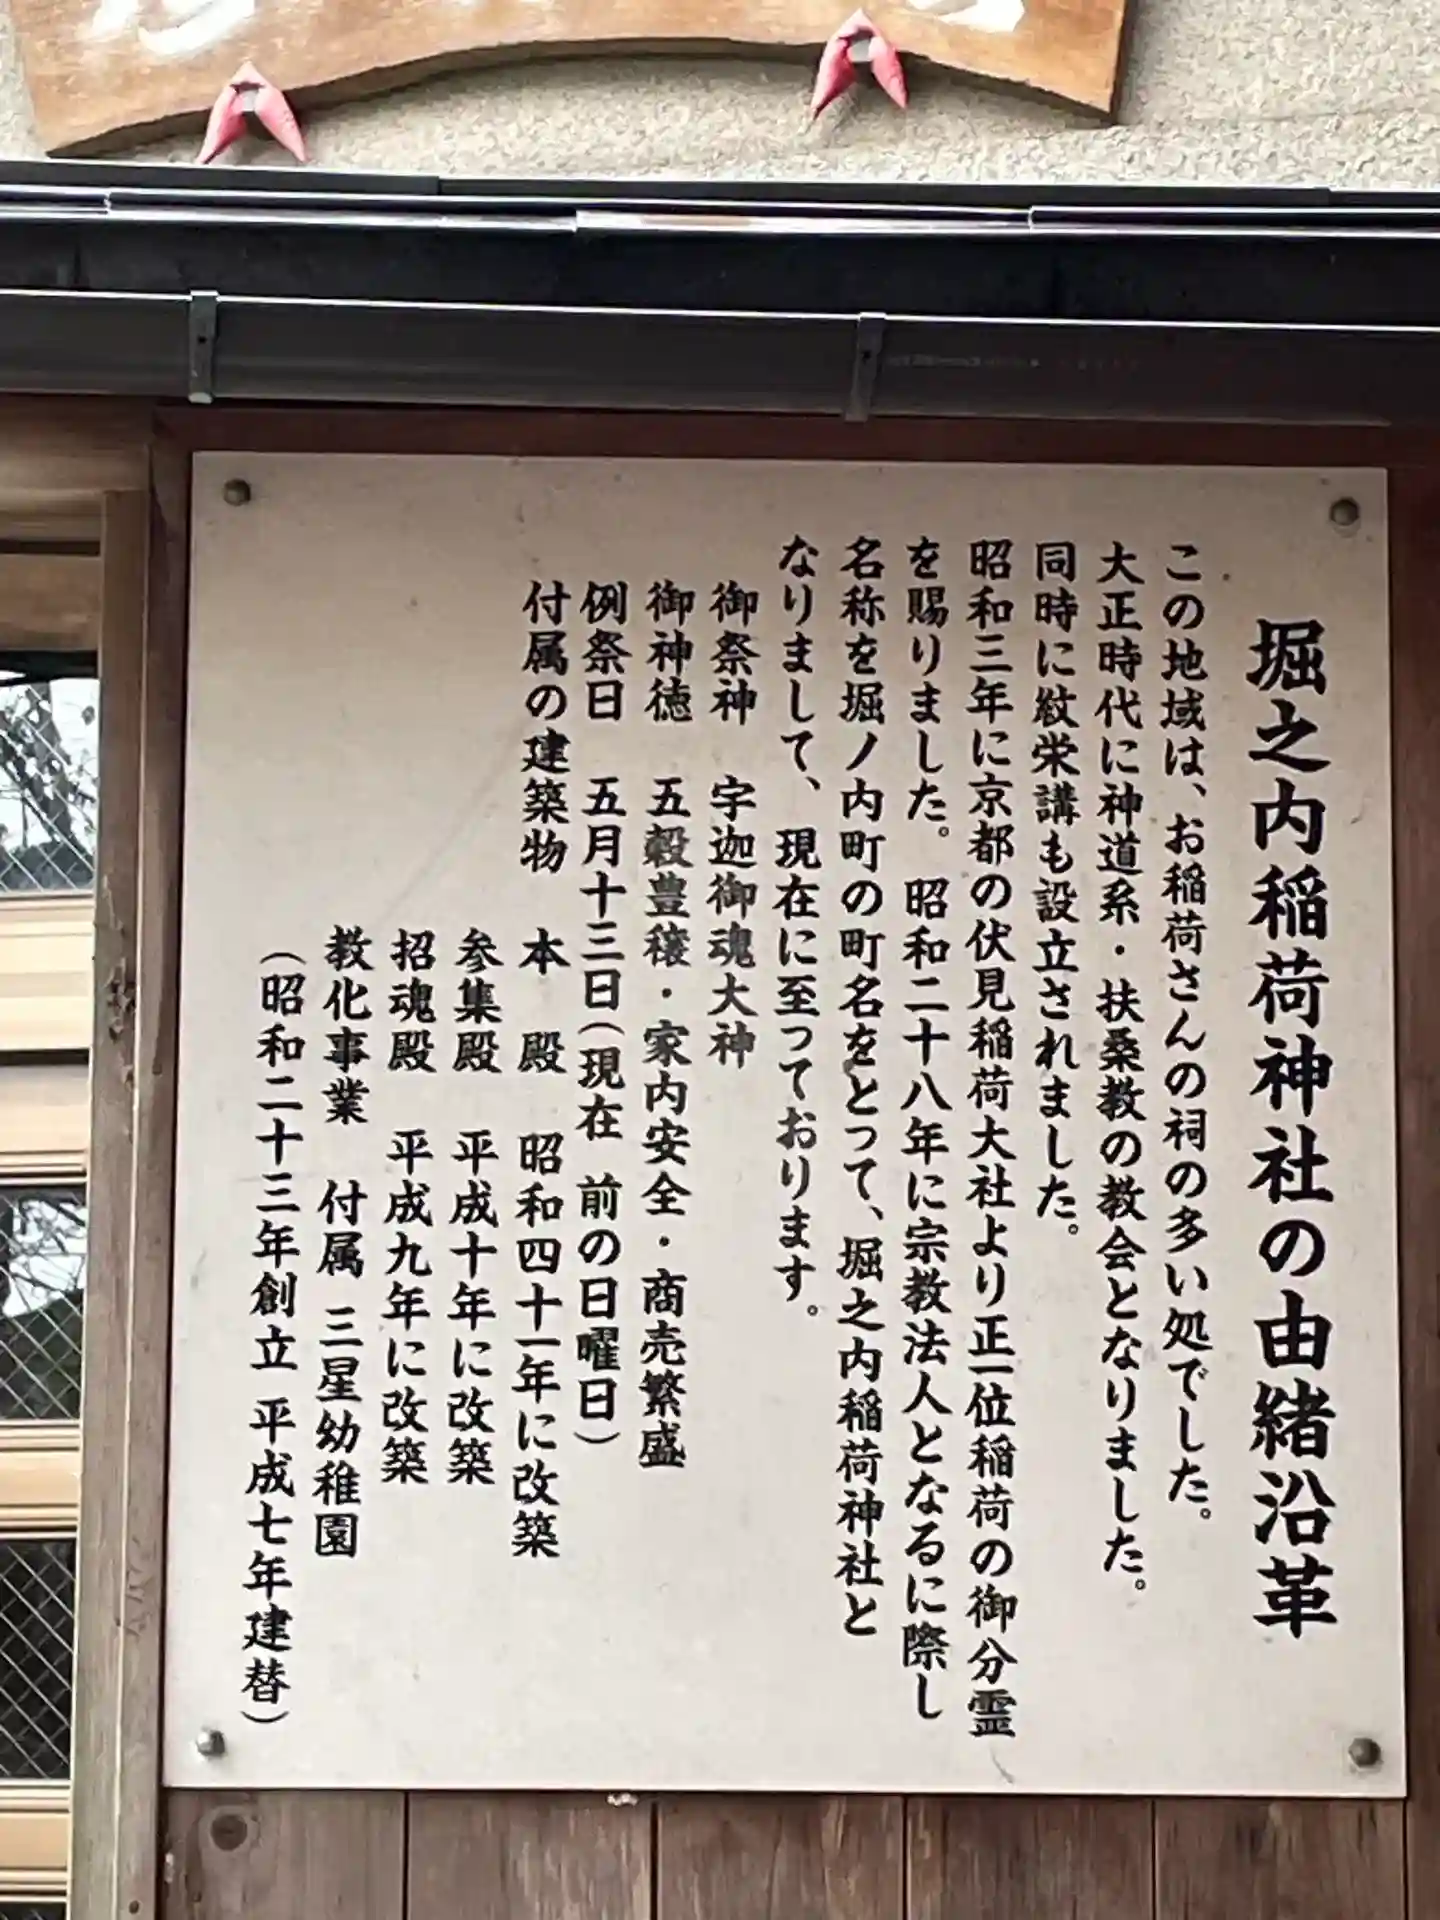 堀之内稲荷神社の由緒沿革
この地域は、お稲荷さんの祠の多い処でした。
大正時代に神道系・扶桑教の教会となりました。
同時に紋栄講も設立されました。
昭和三年に京都の伏見稲荷大社より正一位稲荷の御分霊
を賜りました。昭和二十八年に宗教法人となるに際し
名称を堀ノ内町の町名をとって、堀之内稲荷神社と
なりまして、現在に至っております。
御祭神 宇迦御魂大神
御神徳 五穀豊穣・家内安全・商売繁盛
例祭日 五月十三日（現在 前の日曜日）
付属の建築物 本殿 昭和四十一年に改築
参集殿 平成十年に改築
招魂殿 平成九年に改築
教化事業 付属 三星幼稚園
（昭和二十三年創立 平成七年建替）